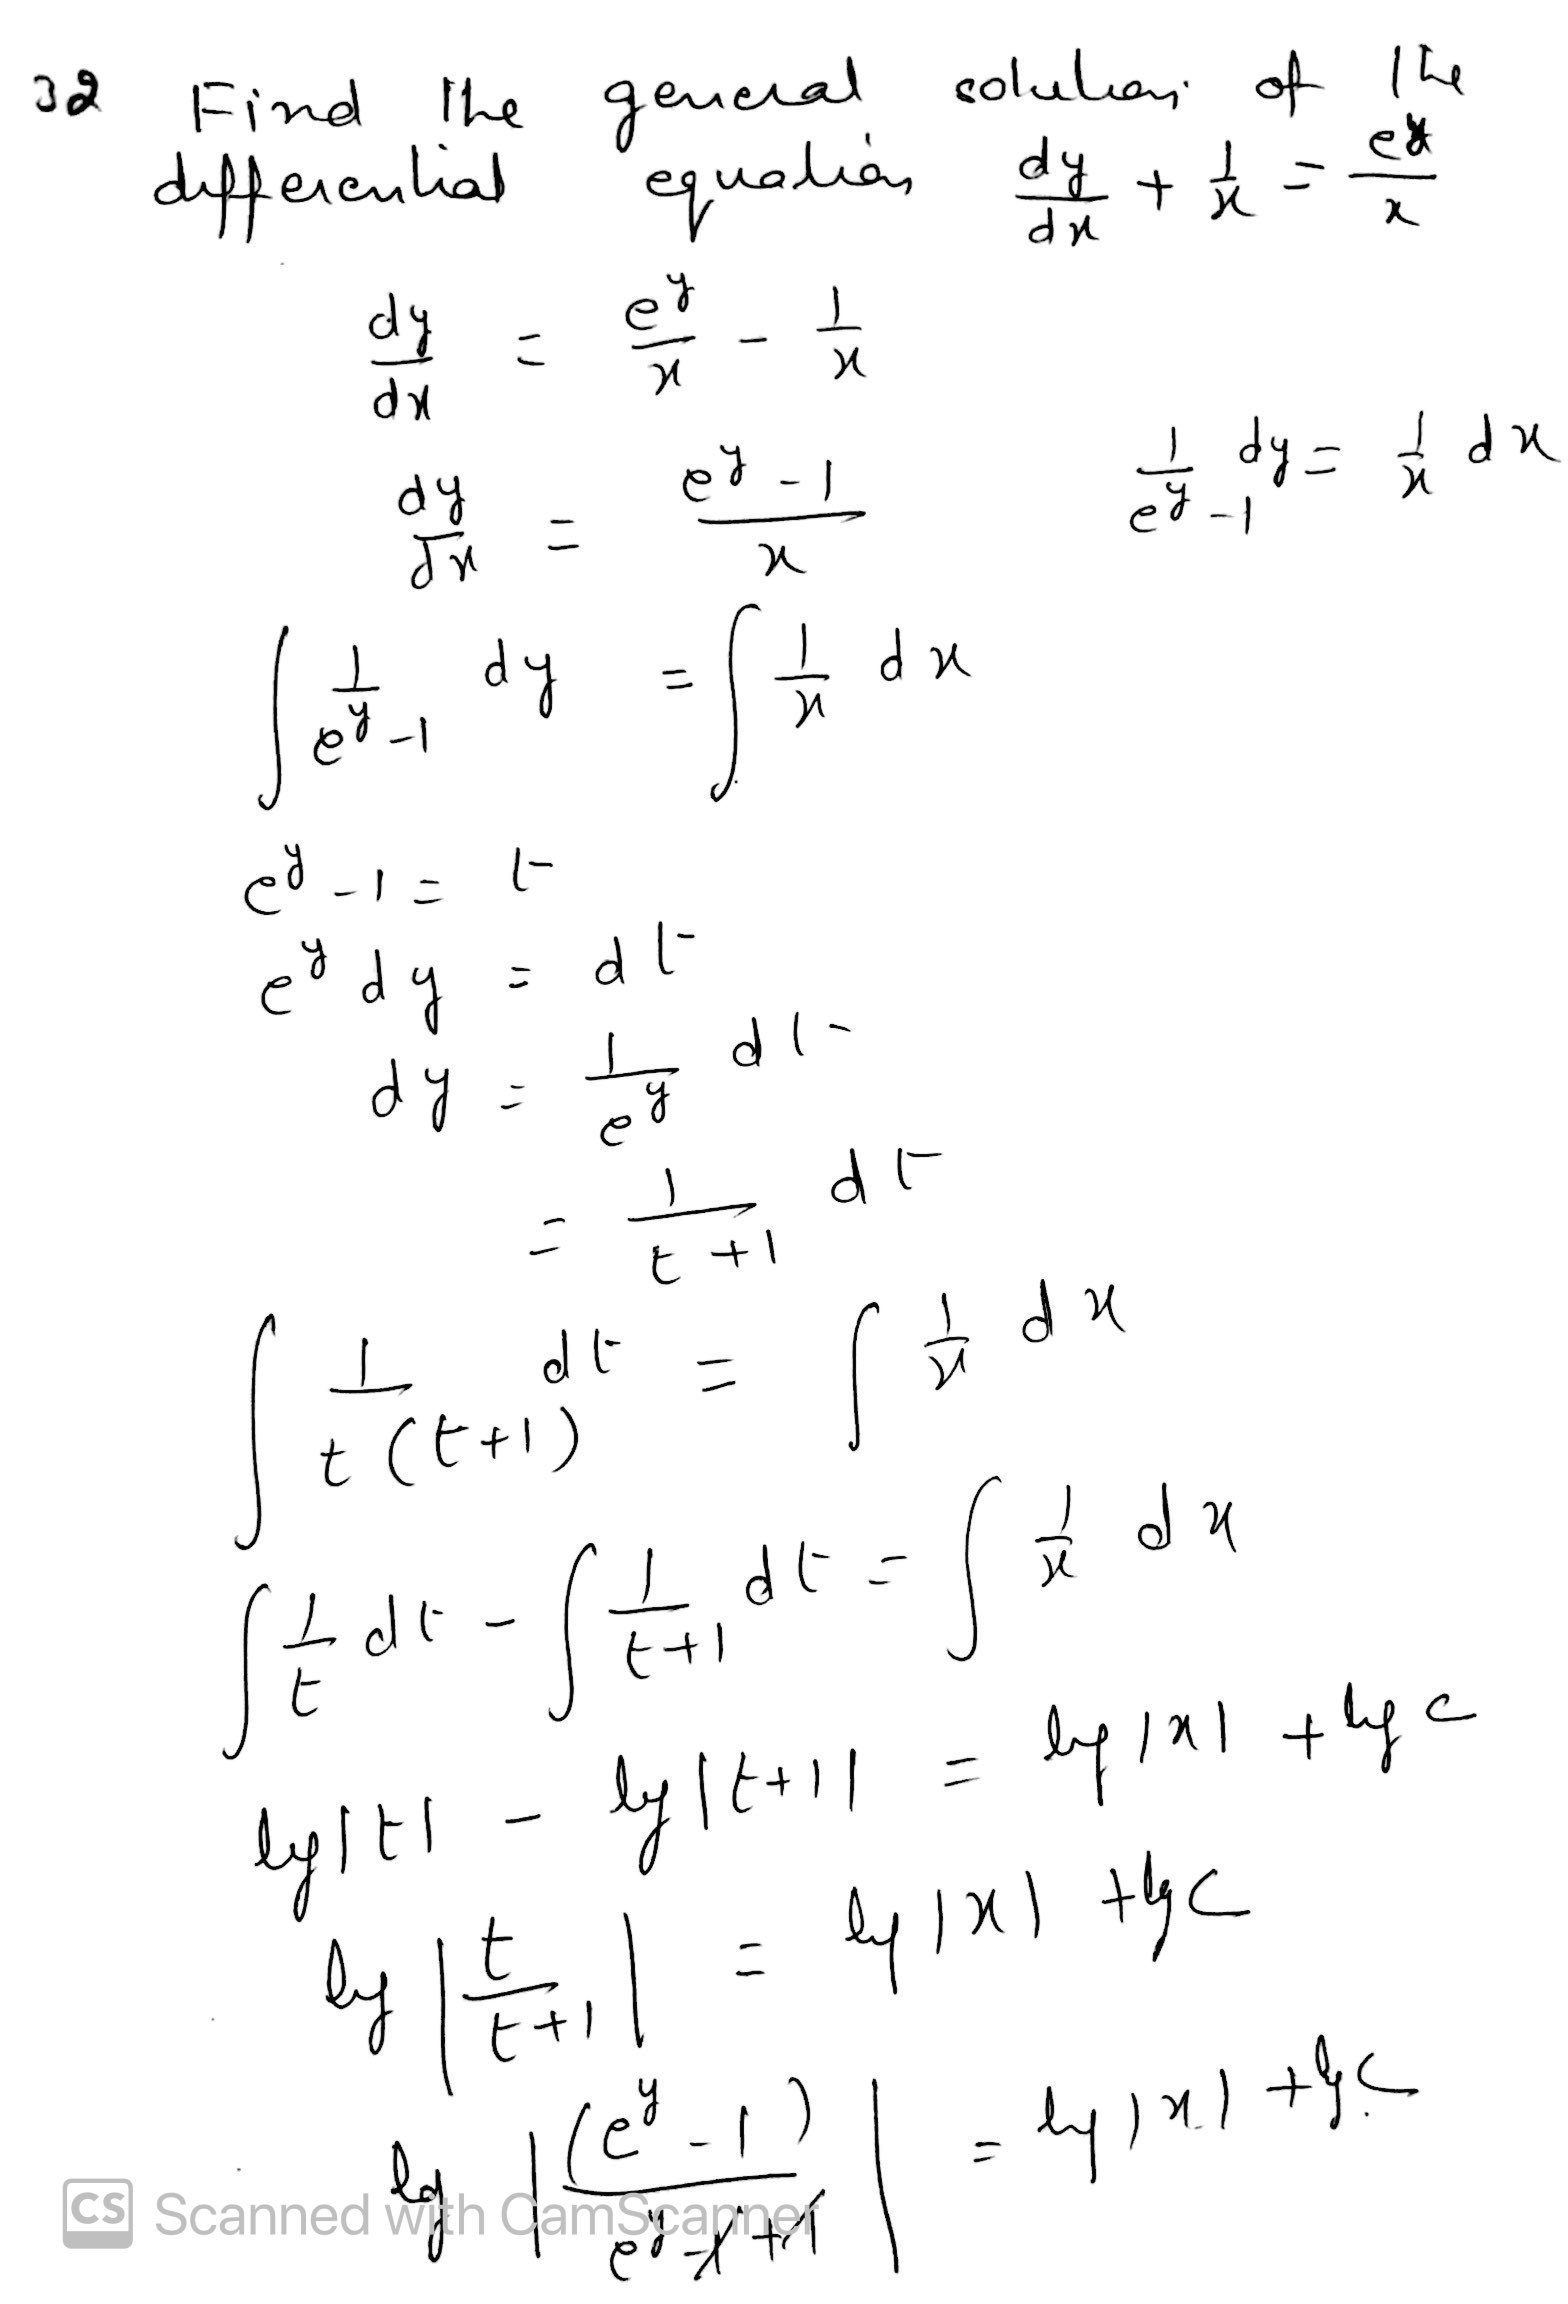 32 Find the general solution of the
differential equation dy/dx + 1/x = e^y/x
dy/dx = e^y/x - 1/x
dy/dx = (e^y - 1)/x
1/(e^y - 1) dy = 1/x dx
∫ 1/(e^y - 1) dy = ∫ 1/x dx
e^y - 1 = t
e^y dy = dt
dy = 1/e^y dt
= 1/(t + 1) dt
∫ 1/(t (t+1)) dt = ∫ 1/x dx
∫ 1/t dt - ∫ 1/(t+1) dt = ∫ 1/x dx
log |t| - log |t+1| = log |x| + log c
log |t/(t+1)| = log |x| + log C
log |(e^y - 1)/(e^y - 1 + 1)| = log |x| + log C
CS Scanned with CamScanner